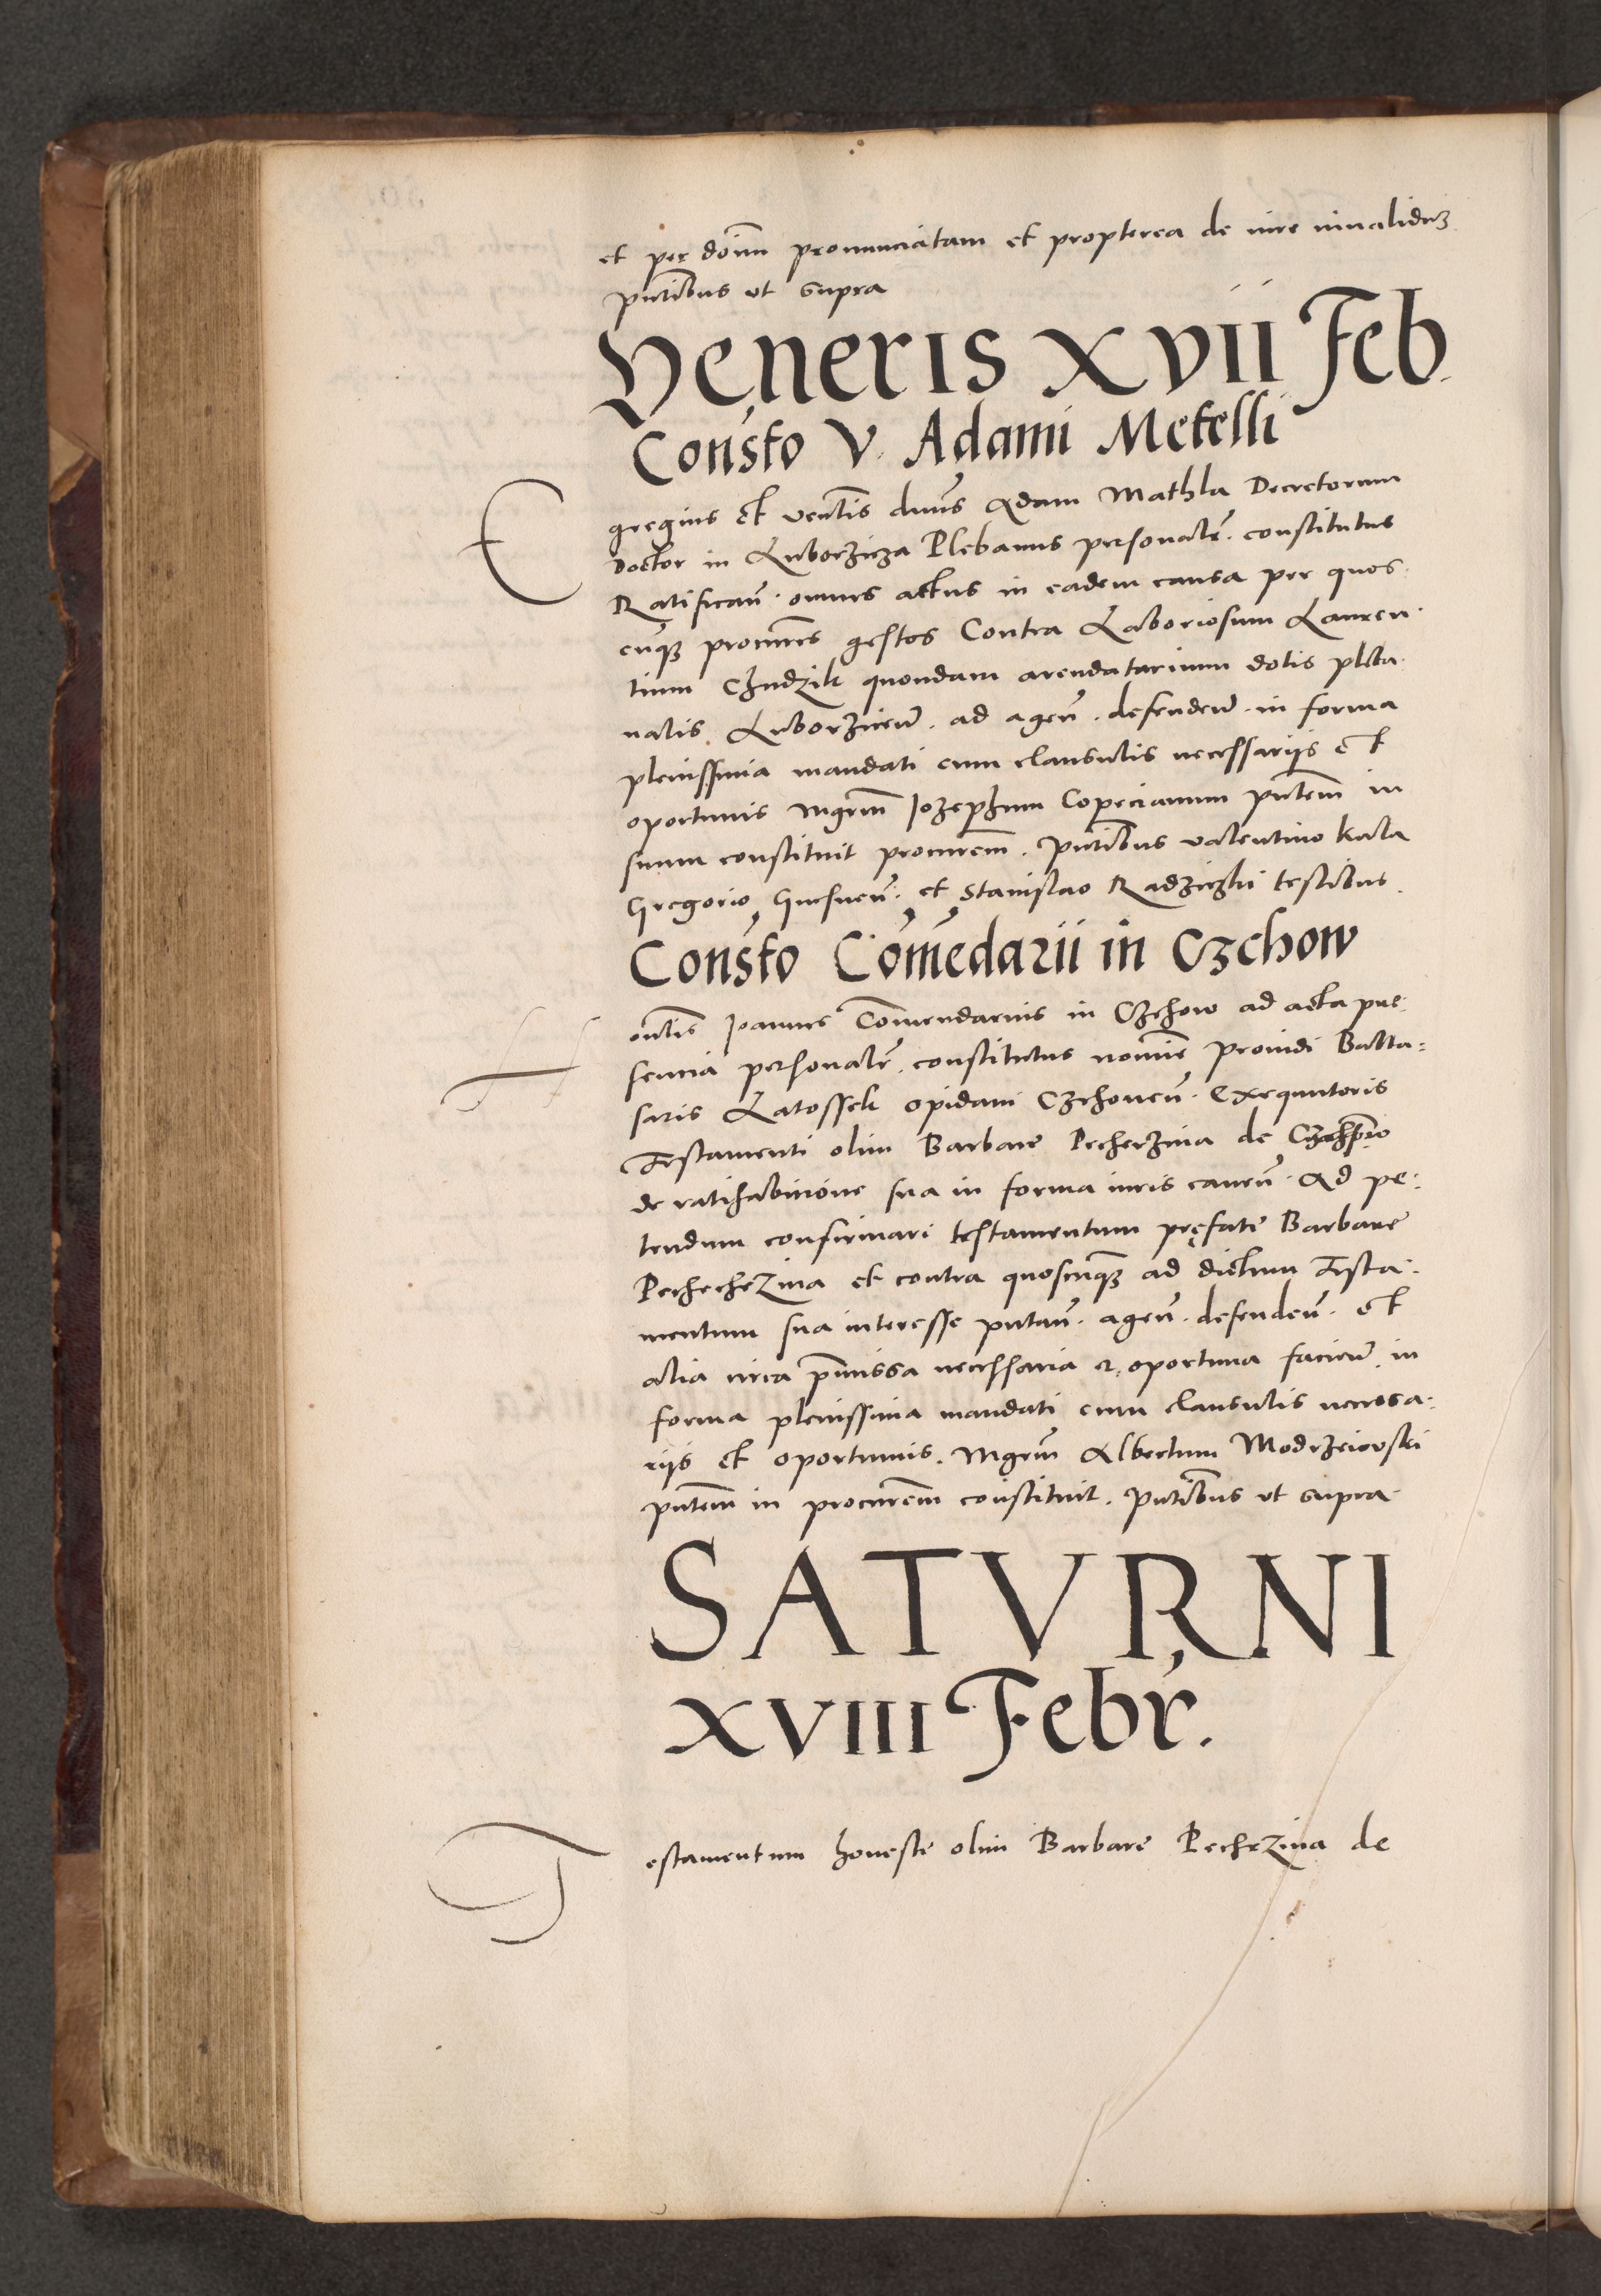 et per doīm pronunciatam et propterea de iure inualidaʒ
pn̄tibus vt supra
Veneris XVII Feb.
Consto V. Adami Metelli
Egregius et ven̄lis dn̄us Adam Mathla Decretorum
Doctor in Luborzicza Plebanus personalr̄. constitutus
Ratifican̄. omnes actus in eadem causa per quos
cunqʒ procur̄es gestos Contra Laboriosum Lauren.
tium Chudzik quondam arendatarium dotis pleba.
nalis Luborzicen̄. ad agen̄. defenden̄. in forma
plenissima mandati cum clausulis necessarijs et
oportunis Mgrm̄ Jozephum Copecianum pn̄tem in
suum constituit procurem̄. Pn̄tibus valentino Kala
Gregorio Gnesnen̄. et Stanislao Radziczki testibus.
Consto Com̄edarii in Czchow
Honn̄lis Joannes Com̄endarius in Czchow ad acta pre.
sencia personalr̄. constitutus nomine prouidi Balta=
saris Latossek opidani Czchouen̄. Exequutoris
Testamenti olim Barbare Pecherzina de
de ratihabicione sua in forma iuris cauen̄. Ad pe.
tendum confirmari testamentum pręfate Barbare
Pechechezina et contra quoscūqʒ ad dictum Testa.
mentum sua interesse putan̄. agen̄. defenden̄. et
alia circa p̄missa necessaria et oportuna facien̄. in
forma plenissima mandati cum clausulis necessa.
rijs et oportunis. Mgrm̄ Albertum Modrzeiowski
pn̄tem in procurem̄ constituit. Pn̄tibus vt supra
SATVRNI
XVIII Febr.
Testamentum honeste olim Barbare Pechezina de